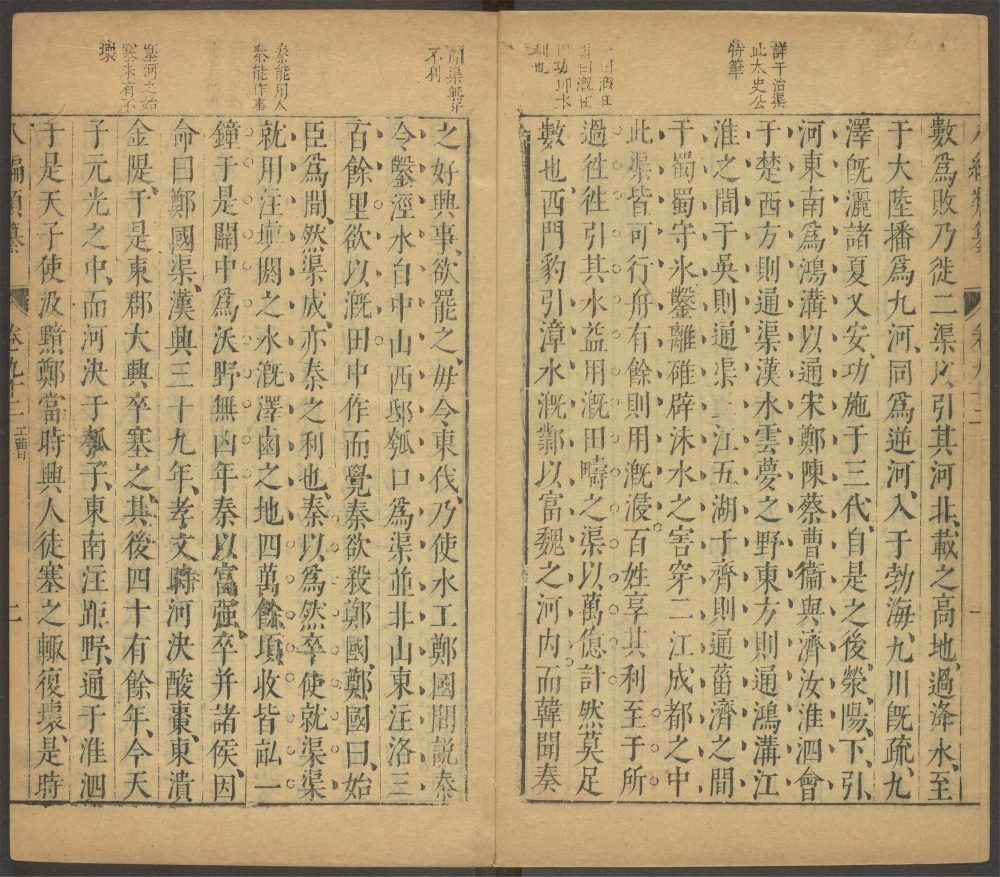 詳于治渠
此太史公
特筆
數爲敗乃徙二渠以引其河北載之高地過洚水至
于大陸播爲九河同爲逆河入于勃海九川旣疏九
澤旣灑諸夏又安功施于三代自是之後滎陽下引
河東南爲鴻溝以通宋鄭陳蔡曹衞與濟汝淮泗會
于楚西方則通渠漢水雲夢之野東方則通鴻溝江
淮之間于吳則通渠三江五湖于齊則通菑濟之間
于蜀蜀守氷鑿離碓辟沫水之害穿二江成都之中
此渠皆可行舟有餘則用漑浸百姓享其利至于所
過徃徃引其水益用漑田疇之渠以萬億計然莫足
數也西門豹引漳水漑鄴以富魏之河內而韓聞秦
開渠無
不利
秦能用人
秦能作事
塞河之始
塞未有不
壞
之好興事欲罷之毋令東伐乃使水工鄭國間說秦
令鑿涇水自中山西邸瓠口爲渠並北山東注洛三
百餘里欲以漑田中作而覺秦欲殺鄭國鄭國曰始
臣爲間然渠成亦秦之利也秦以爲然卒使就渠渠
就用注塡閼之水漑澤鹵之地四萬餘頃收皆畝一
鐘于是關中爲沃野無凶年秦以富强卒并諸侯因
命曰鄭國渠漢興三十九年孝文時河決酸棗東潰
金隄于是東郡大興卒塞之其後四十有餘年今天
子元光之中而河决于瓠子東南注距野通于淮泗
于是天子使汲黯鄭當時興人徒塞之輙復壞是時
八編類纂
卷九十二
二